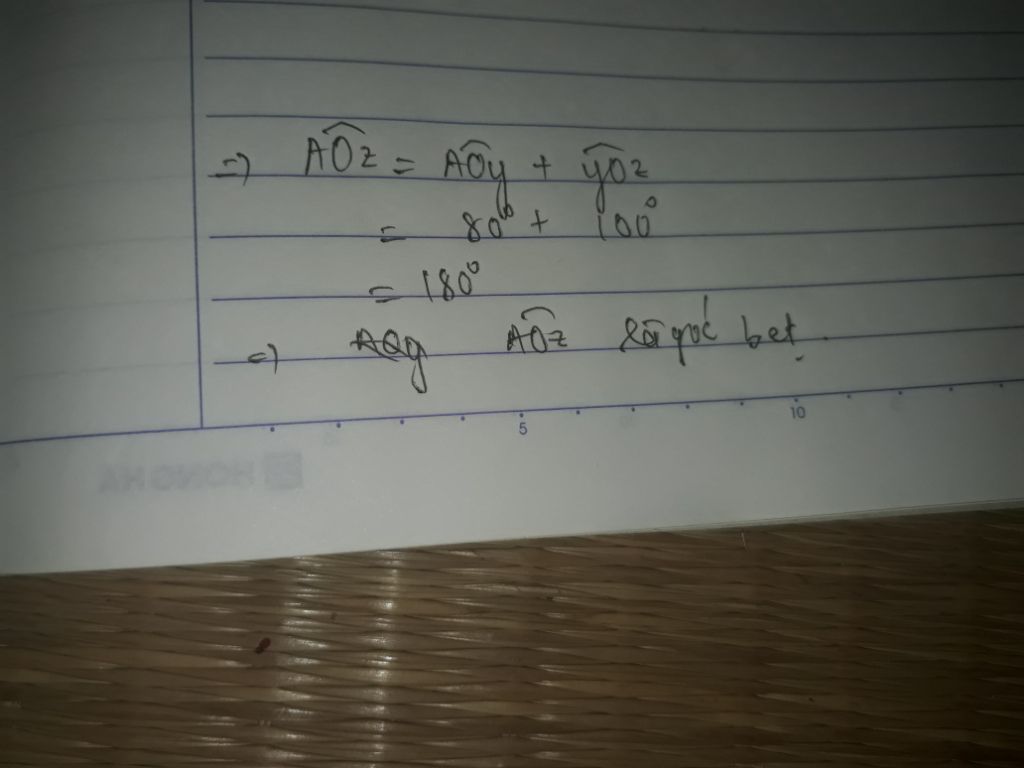 => AOz = AOy + yOz
= 80° + 100°
= 180°
=> AOy AOz là góc bẹt.
5 10
HONG HA